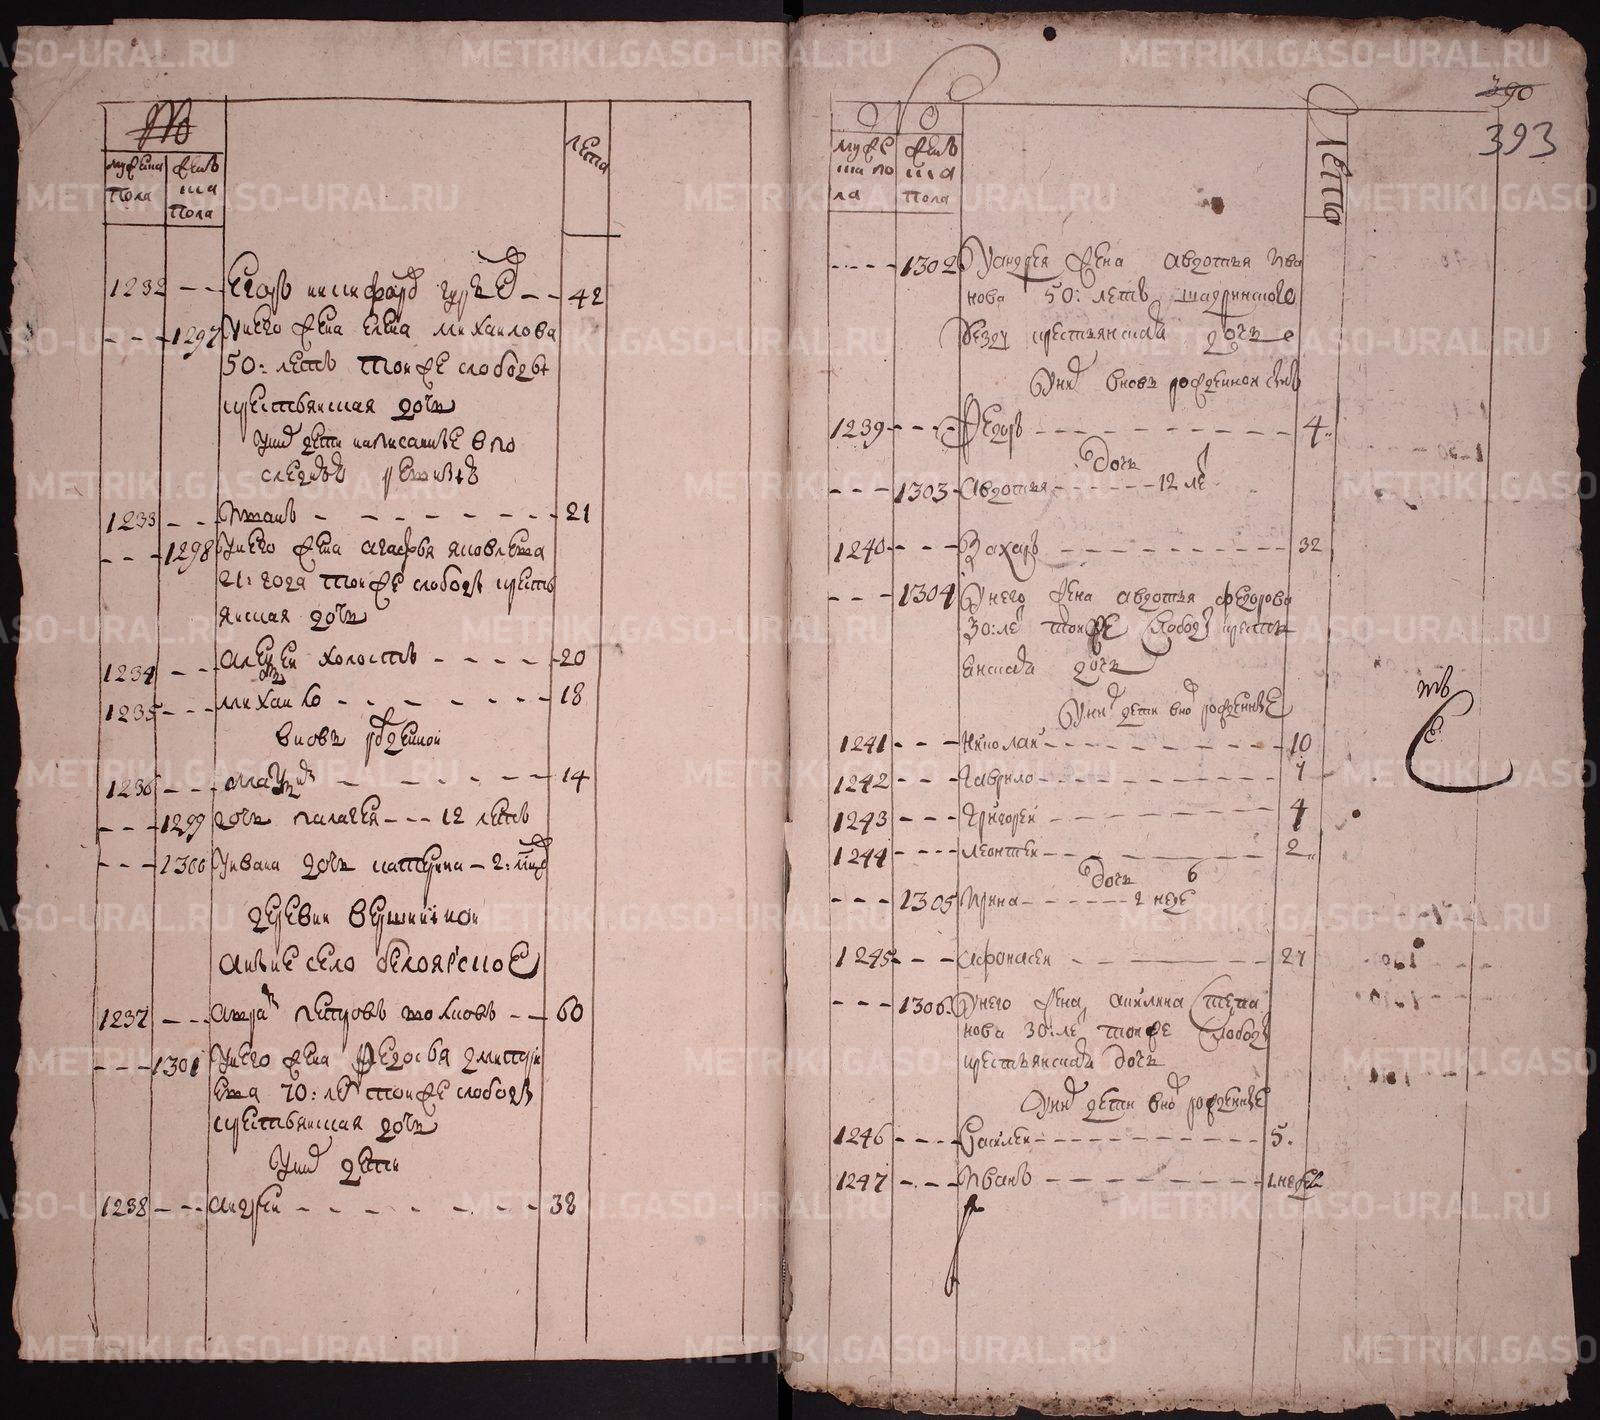 №
мужеска пола
женска пола
лета
1232 - - Егоръ никифоров - - 42
- - - 1297 У него жена елена михаилова
50: летъ тои же слободы
крестьянская дочь
У них дети написанные в по
следней ревизиѣ
1233 - - - - - - - - - 21
- - - 1298 У него жена агафья яковлева
21: года тои же слободы кресть
янская дочь
1234 - - алексеи холостъ - - - - - 20
1235 - - - михаило - - - - - - - 18
вновь рожденной
1236 - - - - - - - - - 14
- - - 1299 дочь палагея - - - 12 летъ
- - - 1300 У ивана дочь катерина - 2: нед
деревни вершининой
а ныне село белоярское
1237 - - - петровъ толковъ - - 60
- - - 1301 У него жена федосья дмитри
ева 70: ле тои же слободы
крестьянская дочь
У них дети
1238 - - - андреи - - - - - - - - 38
390
393
мужеска пола
женска пола
Лета
- - - - 1302 У андрея жена авдотья ива
нова 50: летъ шадринского
уезду крестьянская дочь
У них вновь рожденной сынъ
1239 - - - - Федоръ - - - - - - - - - 4
дочь
- - - 1303 - авдотья - - - - - - 12 ле
1240 - - - Захаръ - - - - - - - - 32
- - - 1304 У него жена авдотья федорова
30: ле тои же слободы кресть
янская дочь
У них дети вно рожденные
1241 - - - Николаи - - - - - - - - 10
1242 - - - Гаврило - - - - - - - - 7
1243 - - - Григореи - - - - - - - 4
1244 - - - - леонтеи - - - - - - - 2
дочь
- - - 1305 Ирина - - - - - - 2 неде
1245 - - - афонасеи - - - - - 27
- - - 1306 У него жена акилина степа
нова 30: ле тои же слободы
крестьянская дочь
У них дети вно рожденные
1246 - - - - - - - - - - - - 5
1247 - - - - Иванъ - - - - - - - - 1 недел